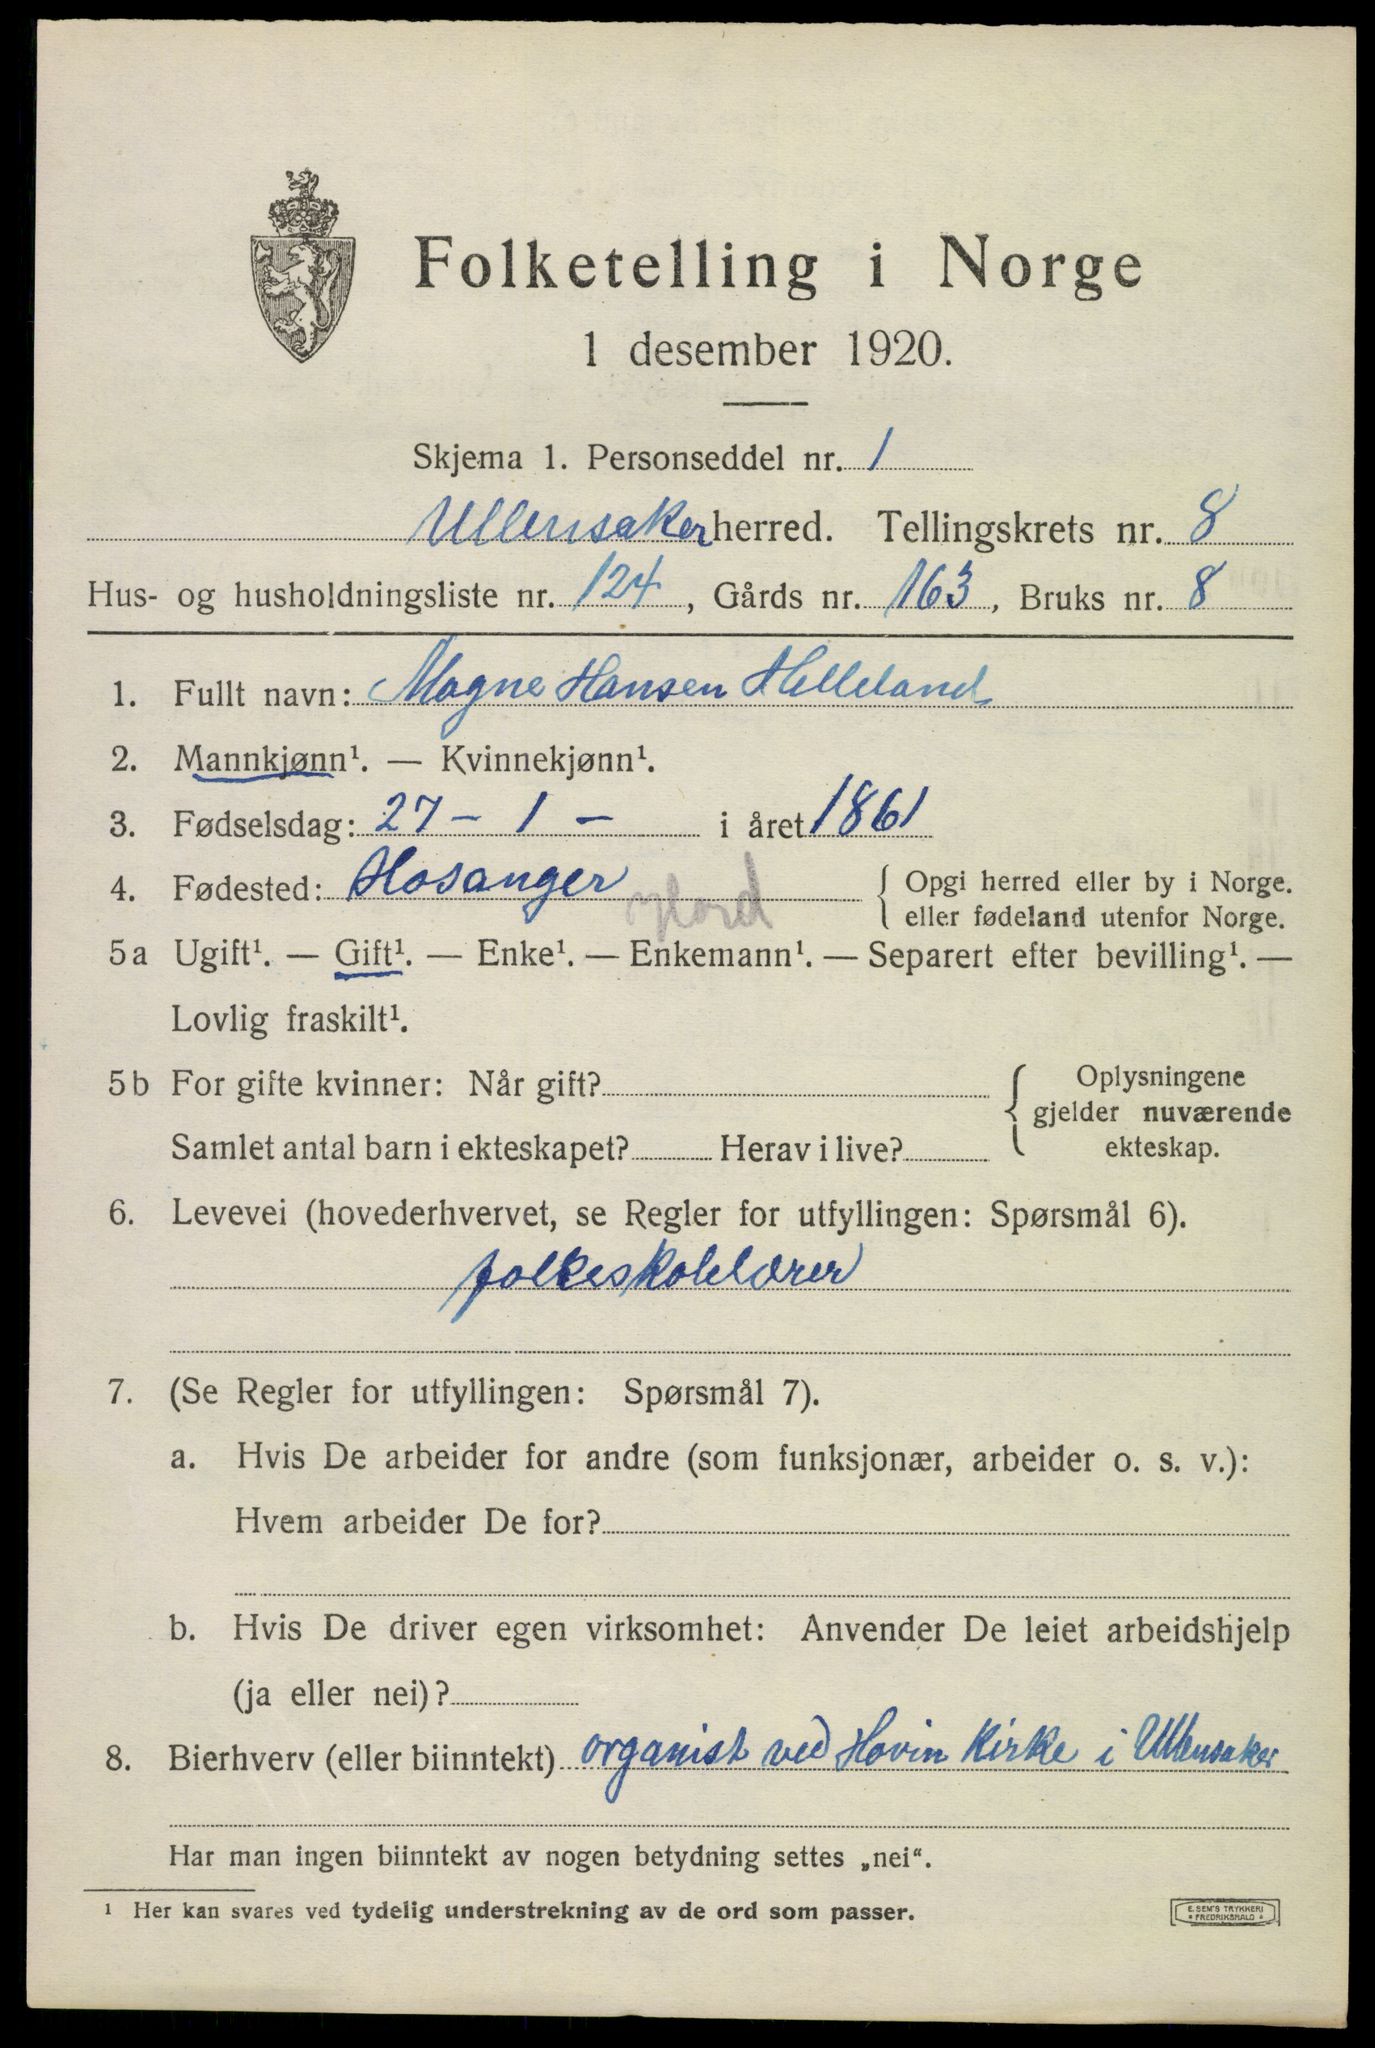 Folketelling i Norge
1 desember 1920.
Skjema 1. Personseddel nr. 1
Ullensaker herred. Tellingskrets nr. 8
Hus- og husholdningsliste nr. 124, Gårds nr. 163, Bruks nr. 8
1. Fullt navn: Magne Hansen Helleland
2. Mannkjønn¹. — Kvinnekjønn¹.
3. Fødselsdag: 27 – 1 – i året 1861
4. Fødested: Hosanger { Opgi herred eller by i Norge.
Hord eller fødeland utenfor Norge.
5a Ugift¹. — Gift¹. — Enke¹. — Enkemann¹. — Separert efter bevilling¹. —
Lovlig fraskilt¹.
5b For gifte kvinner: Når gift? { Oplysningene
gjelder nuværende
Samlet antal barn i ekteskapet? Herav i live? ekteskap.
6. Levevei (hovederhvervet, se Regler for utfyllingen: Spørsmål 6).
folkeskolelærer
7. (Se Regler for utfyllingen: Spørsmål 7).
a. Hvis De arbeider for andre (som funksjonær, arbeider o. s. v.):
Hvem arbeider De for?
b. Hvis De driver egen virksomhet: Anvender De leiet arbeidshjelp
(ja eller nei)?
8. Bierhverv (eller biinntekt) organist ved Hovin kirke i Ullensaker
Har man ingen biinntekt av nogen betydning settes „nei“.
¹ Her kan svares ved tydelig understrekning av de ord som passer.
E. SEM'S TRYKKERI
FREDRIKSHALD